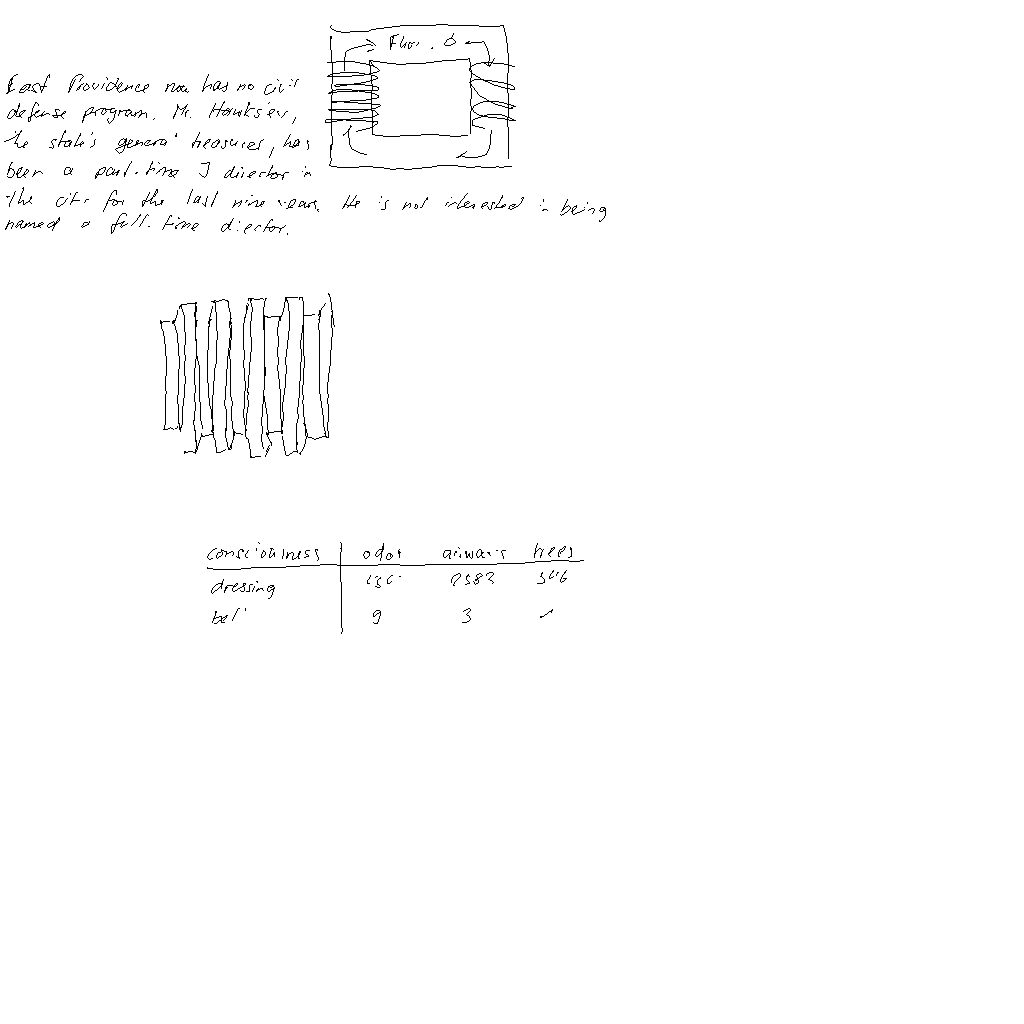 East Providence now has no civil
defense program. Mr. Hawksley,
the state's general treasurer, has
been a part-time J director in
the city for the last nine years. He is not interested in being
named a full-time director.
Flux
consciousness odor airways trees
dressing 2382
9 3